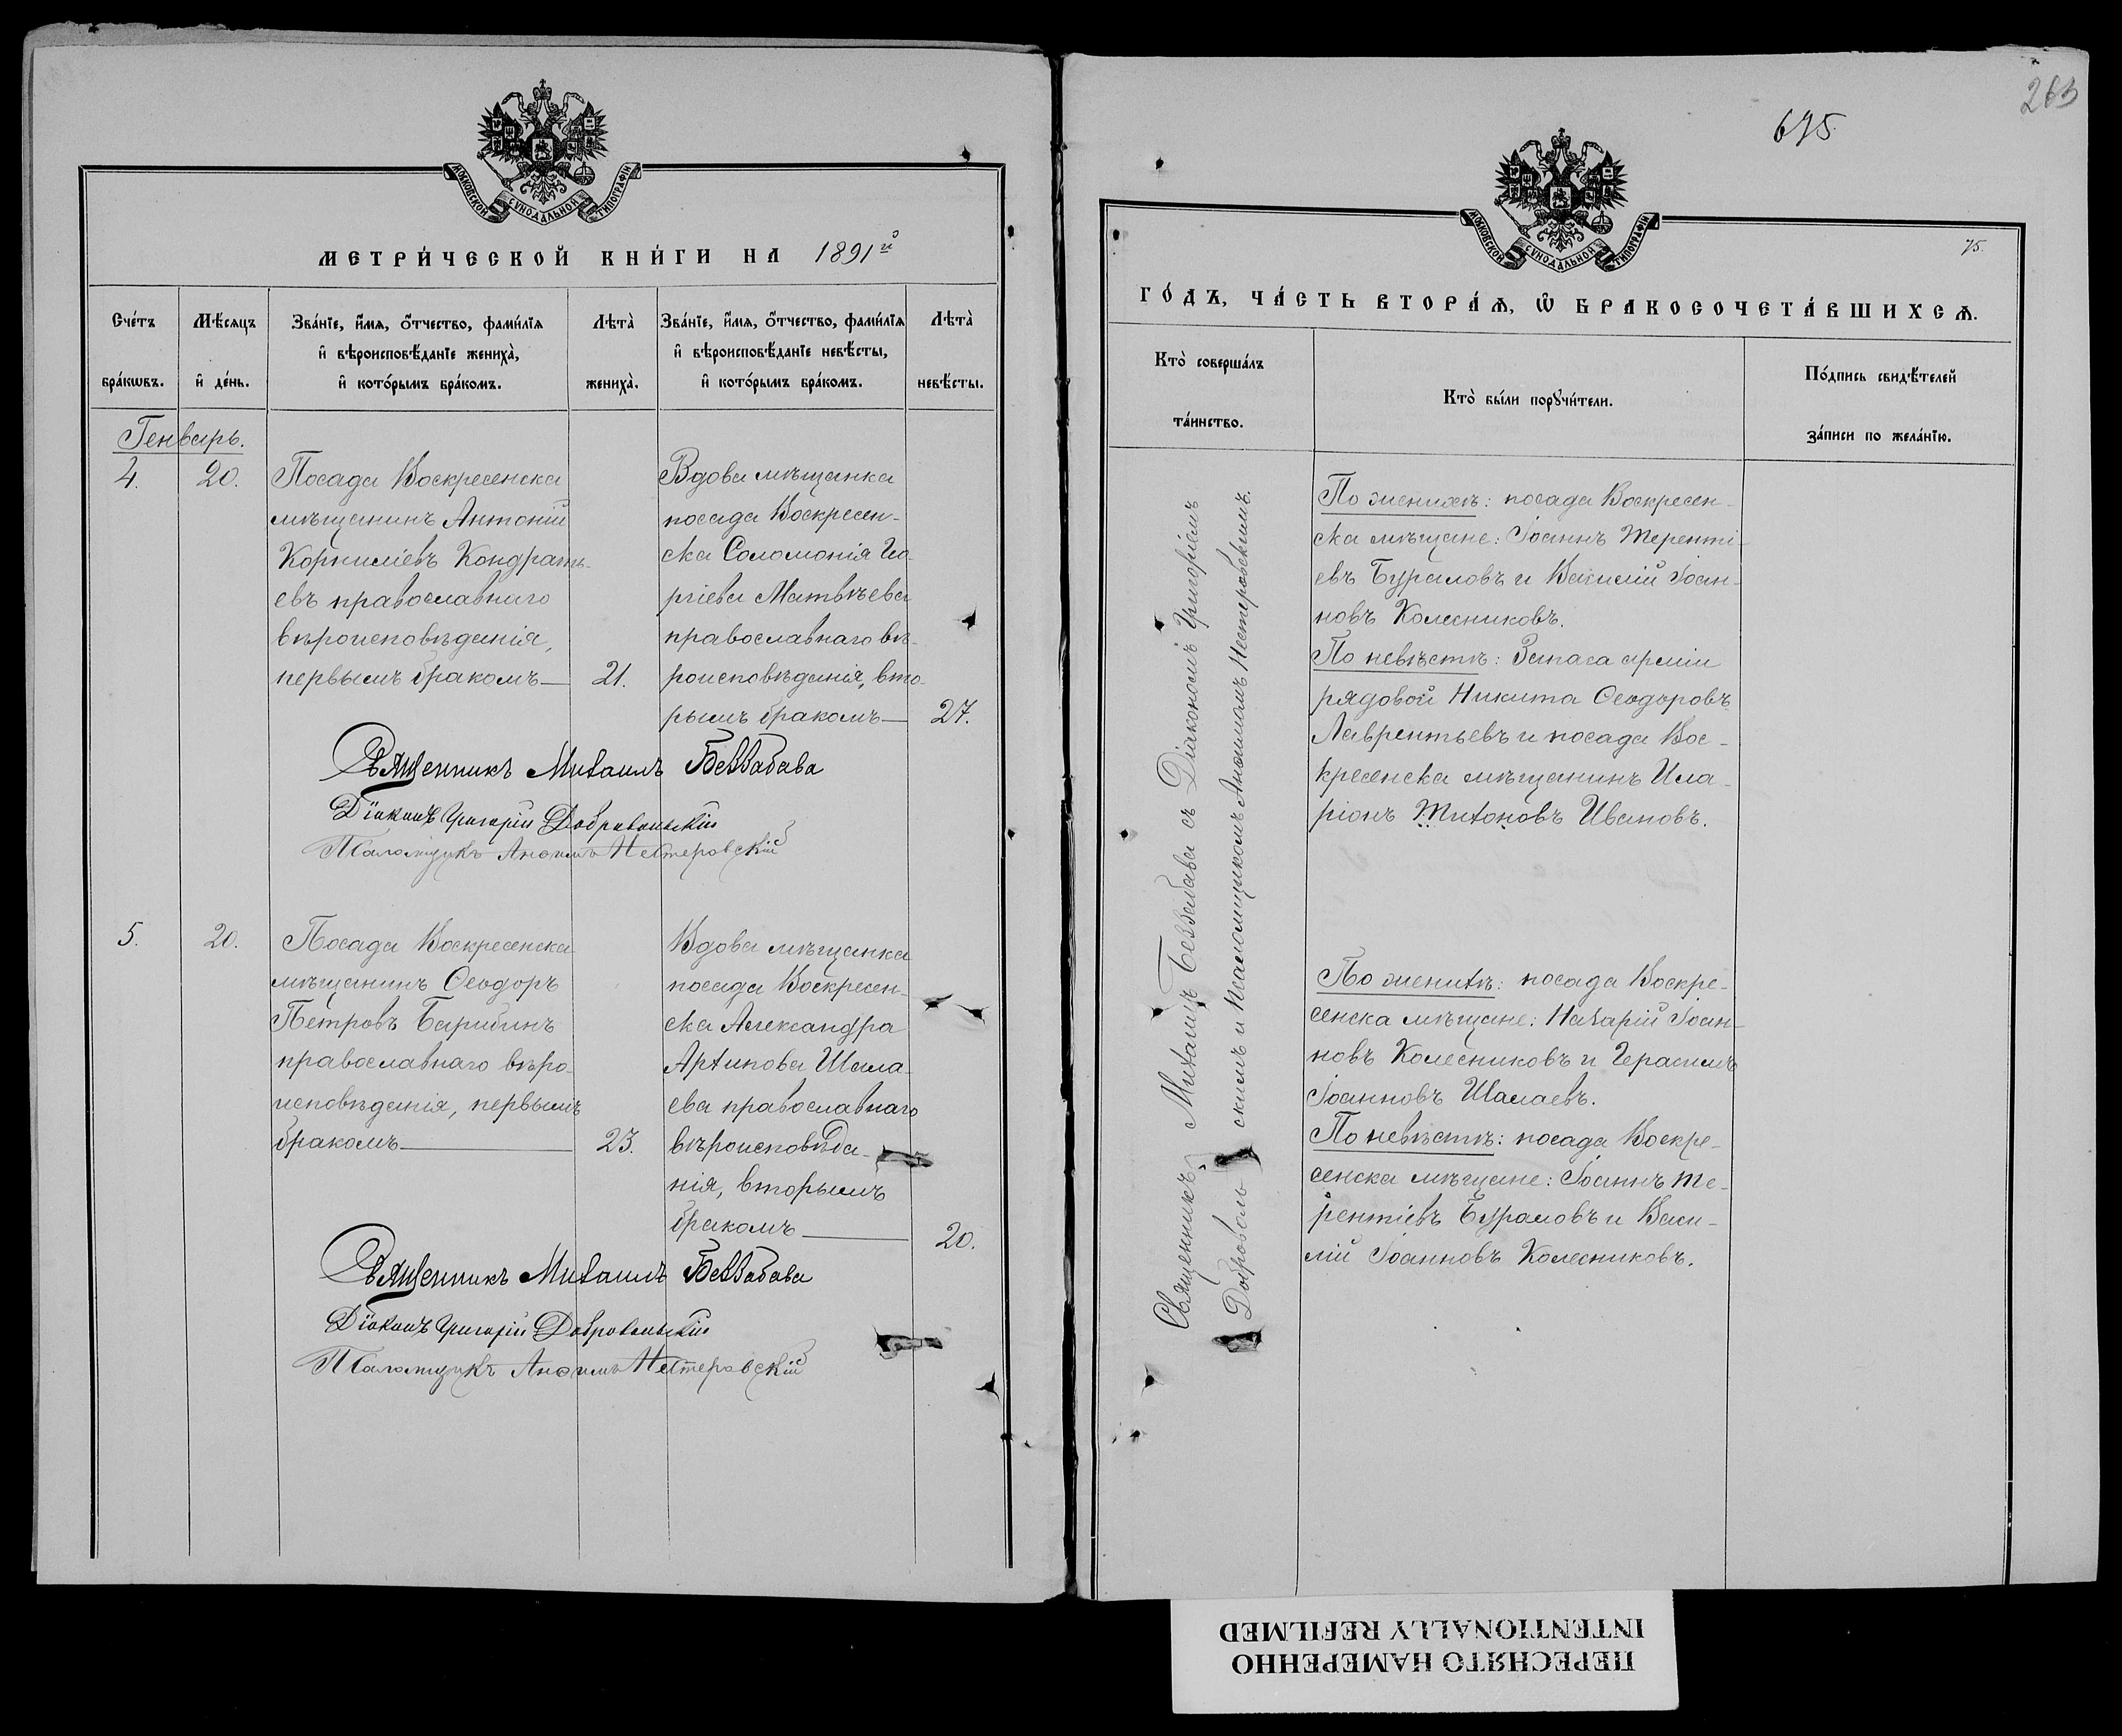 МОСКОВСКОЙ СУНОДАЛЬНОЙ ТИПОГРАФІИ
МЕТРИ́ЧЕСКОЙ КНИ́ГИ НА 1891й
Сче́тъ бра́кѡвъ.
Мѣ́сяцъ и҆ де́нь.
Зва́нїе, и҆́мѧ, ѻ҆́тчество, фами́лїѧ
и҆ вѣроисповѣ́данїе жениха̀,
и҆ кото́рымъ бра́комъ.
Лѣта̀ жениха̀.
Зва́нїе, и҆́мѧ, ѻ҆́тчество, фами́лїѧ
и҆ вѣроисповѣ́данїе невѣ́сты,
и҆ кото́рымъ бра́комъ.
Лѣта̀ невѣ́сты.
Генварь.
4.
20.
Посада Воскресенска
мѣщанинъ Антоній
Корниліевъ Кондрать-
евъ православнаго
вѣроисповѣданія,
первымъ бракомъ—
21.
Вдова мѣщанка
посада Воскресен-
ска Соломонія Гео-
ргіева Матвѣева
православнаго вѣ-
роисповѣданія, вто-
рымъ бракомъ—
27.
Священникъ Михаилъ Беззабава
Діаконъ Григорій Добровольскій
Псаломщикъ Анѳимъ Нестеровскій
5.
20.
Посада Воскресенска
мѣщанинъ Ѳеодоръ
Петровъ Барибинъ
православнаго вѣро-
исповѣданія, первымъ
бракомъ—
23.
Вдова мѣщанка
посада Воскресен-
ска Александра
Архипова Шала-
ева православнаго
вѣроисповѣда-
нія, вторымъ
бракомъ—
20.
Священникъ Михаилъ Беззабава
Діаконъ Григорій Добровольскій
Псаломщикъ Анѳимъ Нестеровскій
675.
263
МОСКОВСКОЙ СУНОДАЛЬНОЙ ТИПОГРАФІИ
75.
ГО́ДЪ, ЧА́СТЬ ВТОРА́Ѧ, Ѡ҆ БРАКОСОЧЕТА́ВШИХСѦ.
Кто̀ соверша́лъ
та́инство.
Кто̀ бы́ли порꙋчи́тели.
По́дпись свидѣ́телей
за́писи по жела́нїю.
Священникъ Михаилъ Беззабава съ Діакономъ Григоріемъ
Доброволь скимъ и Псаломщикомъ Анѳимомъ Нестеровскимъ.
По женихѣ: посада Воскресен-
ска мѣщане: Іоаннъ Теренті-
евъ Бураловъ и Василій Іоан-
новъ Колесниковъ.
По невѣстѣ: Запаса арміи
рядовой Никита Ѳеодоровъ
Лаврентьевъ и посада Вос-
кресенска мѣщанинъ Ила-
ріонъ Тихоновъ Ивановъ.
По женихѣ: посада Воскре-
сенска мѣщане: Назарій Іоан-
новъ Колесниковъ и Герасимъ
Іоанновъ Шалаевъ.
По невѣстѣ: посада Воскре-
сенска мѣщане: Іоаннъ Те-
рентіевъ Бураловъ и Васи-
лій Іоанновъ Колесниковъ.
ПЕРЕСНЯТО НАМЕРЕННО
INTENTIONALLY REFILMED